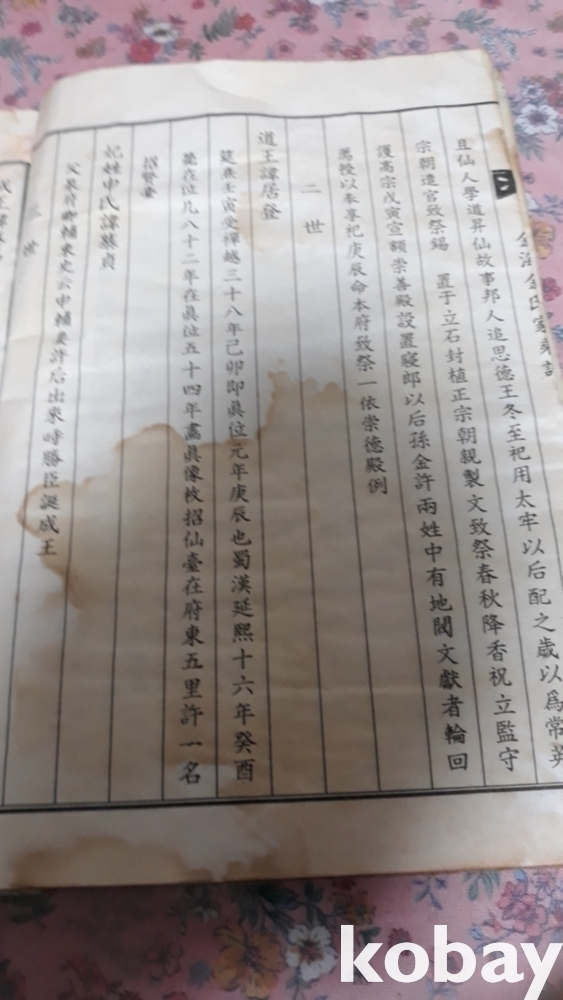 且仙人學道昇仙故事邦人追思德王冬至祀用太牢以后配之歲以爲常英
宗朝遣官致祭錫 置于立石封植正宗朝親製文致祭春秋降香祝立監守
護高宗戊寅宣額崇善殿設置寢郎以后孫金許兩姓中有地閥文獻者輪回
薦授以奉享祀庚辰命本府致祭一依崇德殿例
二世
道王諱居登
建 壬寅受禪越三十八年己卯即眞位元年庚辰也蜀漢延熙十六年癸酉
薨在位凡八十二年在眞位五十四年畵眞像於招仙臺在府東五里許一名
招賢臺
妃 申氏諱慕貞
父泉府卿輔東史云申輔妻許后出來時勝臣誕成王
三世
成王諱
kobay